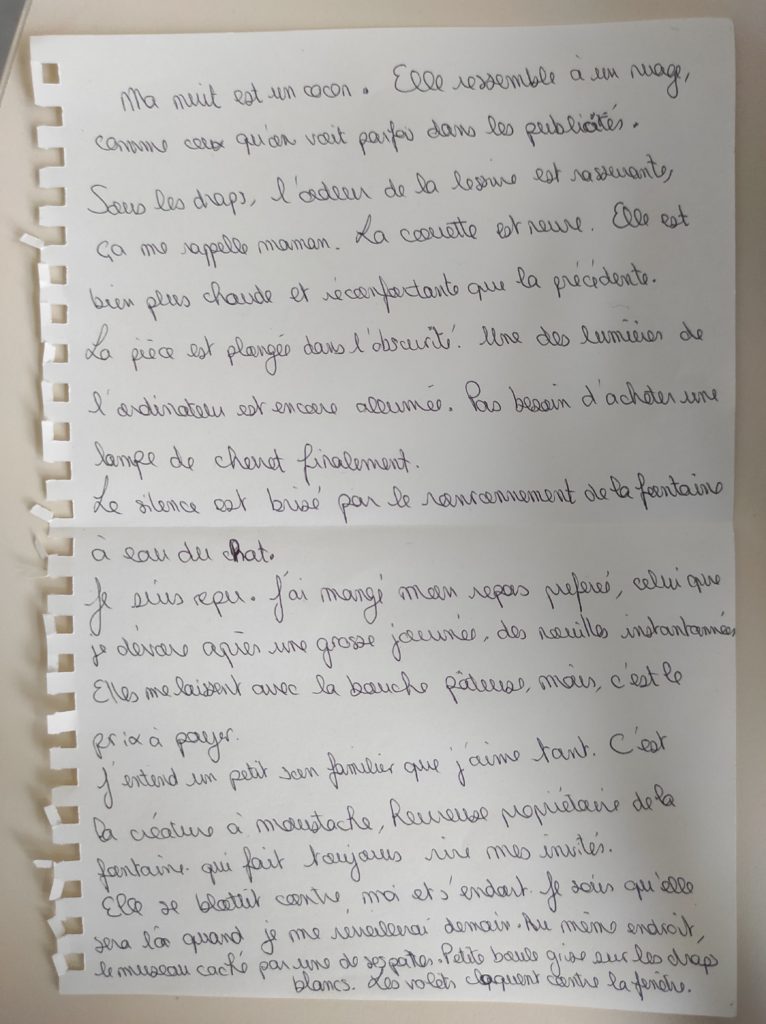 Ma nuit est un cocon. Elle ressemble à un nuage,
comme ceux qu'on voit parfois dans les publicités.
Sous les draps, l'odeur de la lessive est rassurante,
ça me rappelle maman. La couette est neuve. Elle est
bien plus chaude et réconfortante que la précédente.
La pièce est plongée dans l'obscurité. Une des lumières de
l'ordinateur est encore allumée. Pas besoin d'acheter une
lampe de chevet finalement.
Le silence est brisé par le ronronnement de la fontaine
à eau du chat.
Je suis repu. J'ai mangé mon repas préféré, celui que
je dévore après une grosse journée, des nouilles instantannées
Elles me laissent avec la bouche pâteuse, mais, c'est le
prix à payer.
J'entend un petit son familier que j'aime tant. C'est
la créature à moustache, heureuse propriétaire de la
fontaine qui fait toujours rire mes invités.
Elle se blottit contre moi et s'endort. Je sais qu'elle
sera là quand je me réveillerai demain. Au même endroit,
le museau caché par une de ses pattes. Petite boule grise sur les draps
blancs. Les volets claquent contre la fenêtre.